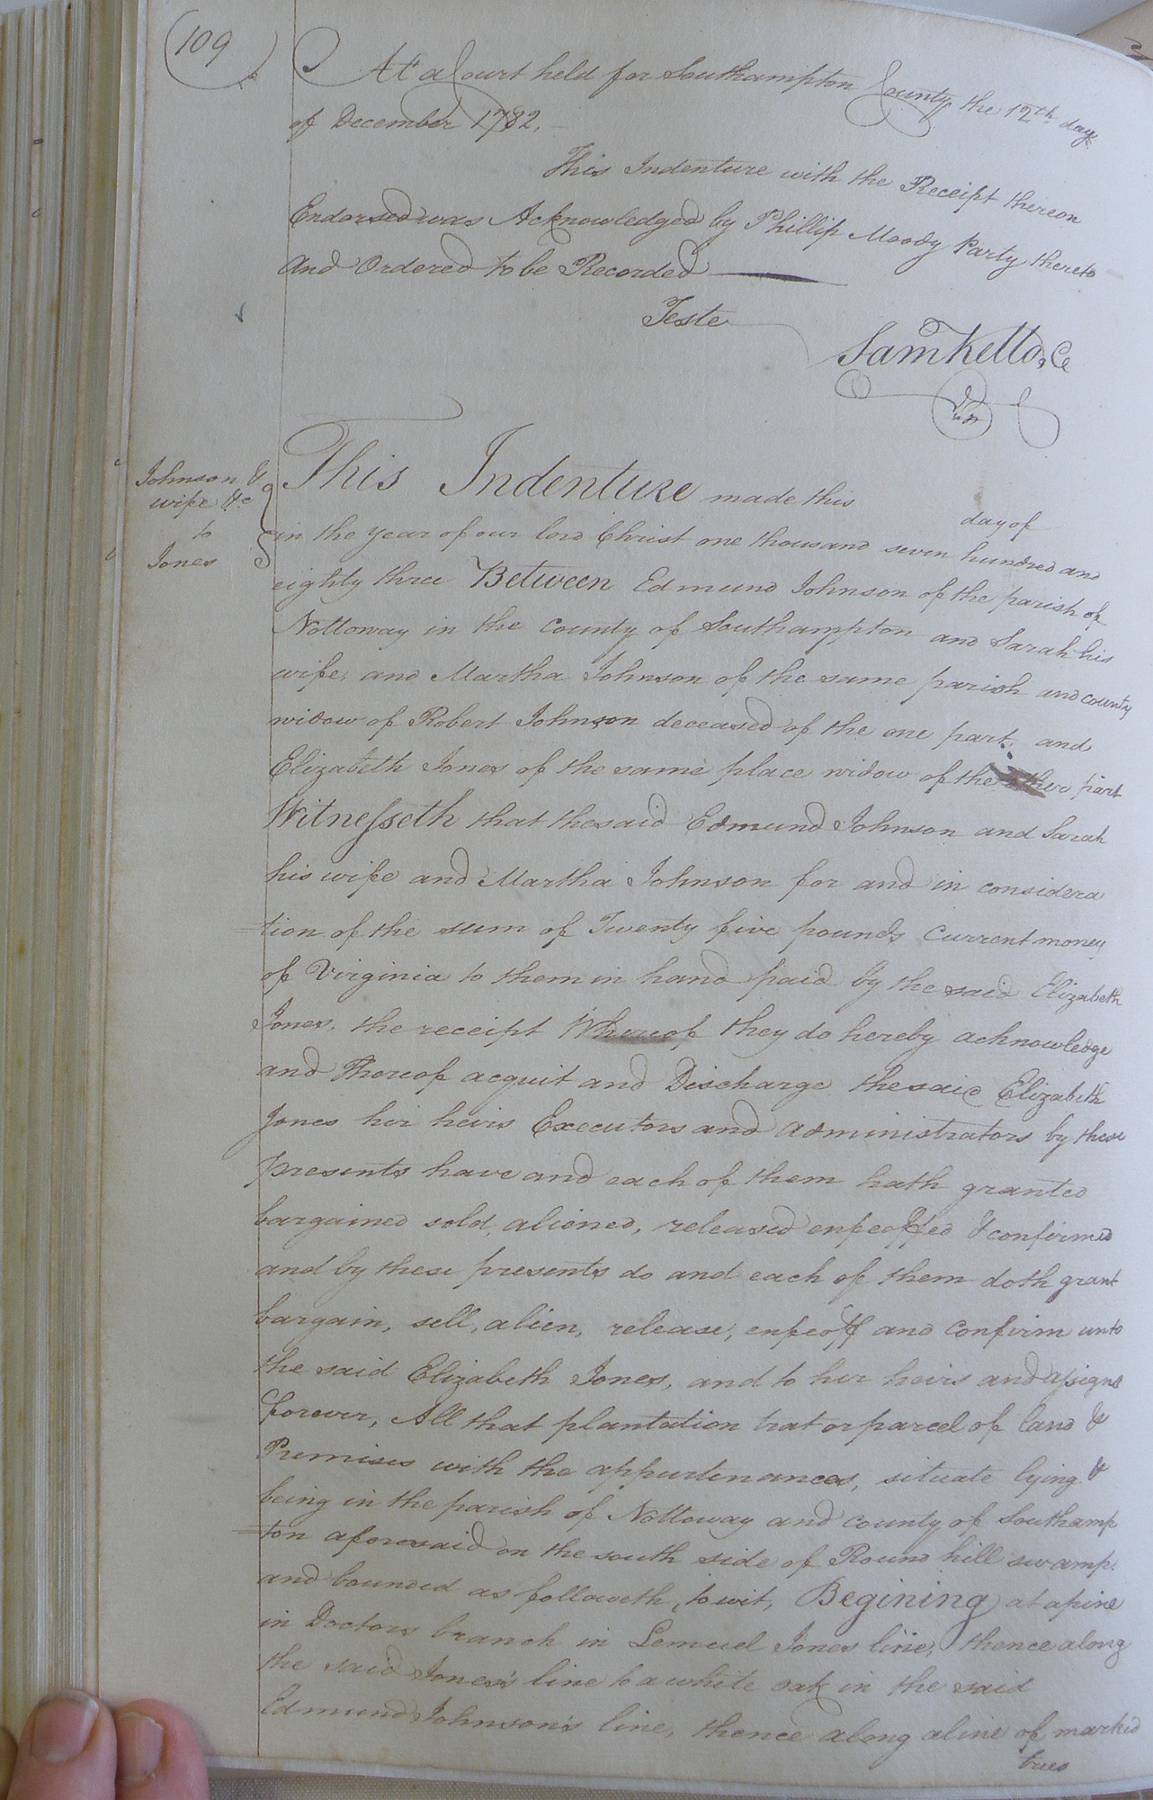 109
At a Court held for Southampton County the 12th day
of December 1782.
This Indenture with the Receipt thereon
Endorsed was Acknowledged by Phillip Moody Party thereto
And Ordered to be Recorded
Teste
Saml Kello, Cl
Johnson &
wife &c
to
Jones
This Indenture made this day of
in the year of our lord Christ one thousand seven hundred and
eighty three Between Edmund Johnson of the parish of
Nottoway in the County of Southampton and Sarah his
wife, and Martha Johnson of the same parish and county
widow of Robert Johnson deceased of the one part, and
Elizabeth Jones of the same place widow of the other part
Witnesseth that the said Edmund Johnson and Sarah
his wife and Martha Johnson for and in considera
=tion of the sum of Twenty five pounds Current money
of Virginia to them in hand paid by the said Elizabeth
Jones, the receipt Whereof they do hereby acknowledge
and Thereof acquit and Discharge the said Elizabeth
Jones her heirs Executors and administrators by these
presents have and each of them hath granted
bargained sold, aliened, released enfeoffed & confirmed
and by these presents do and each of them doth grant
bargain, sell, alien, release, enfeoff and Confirm unto
the said Elizabeth Jones, and to her heirs and assigns
forever, All that plantation trat or parcel of land &
Premises with the appurtenances, situate lying &
being in the parish of Nottoway and county of Southamp
=ton aforesaid on the south side of Round hill swamp.
and bounded as followeth, to wit, Begining at a pine
in Doctors branch in Lemuel Jones line, thence along
the said Jones's line to a white oak in the said
Edmund Johnson's line, thence along a line of marked
trees